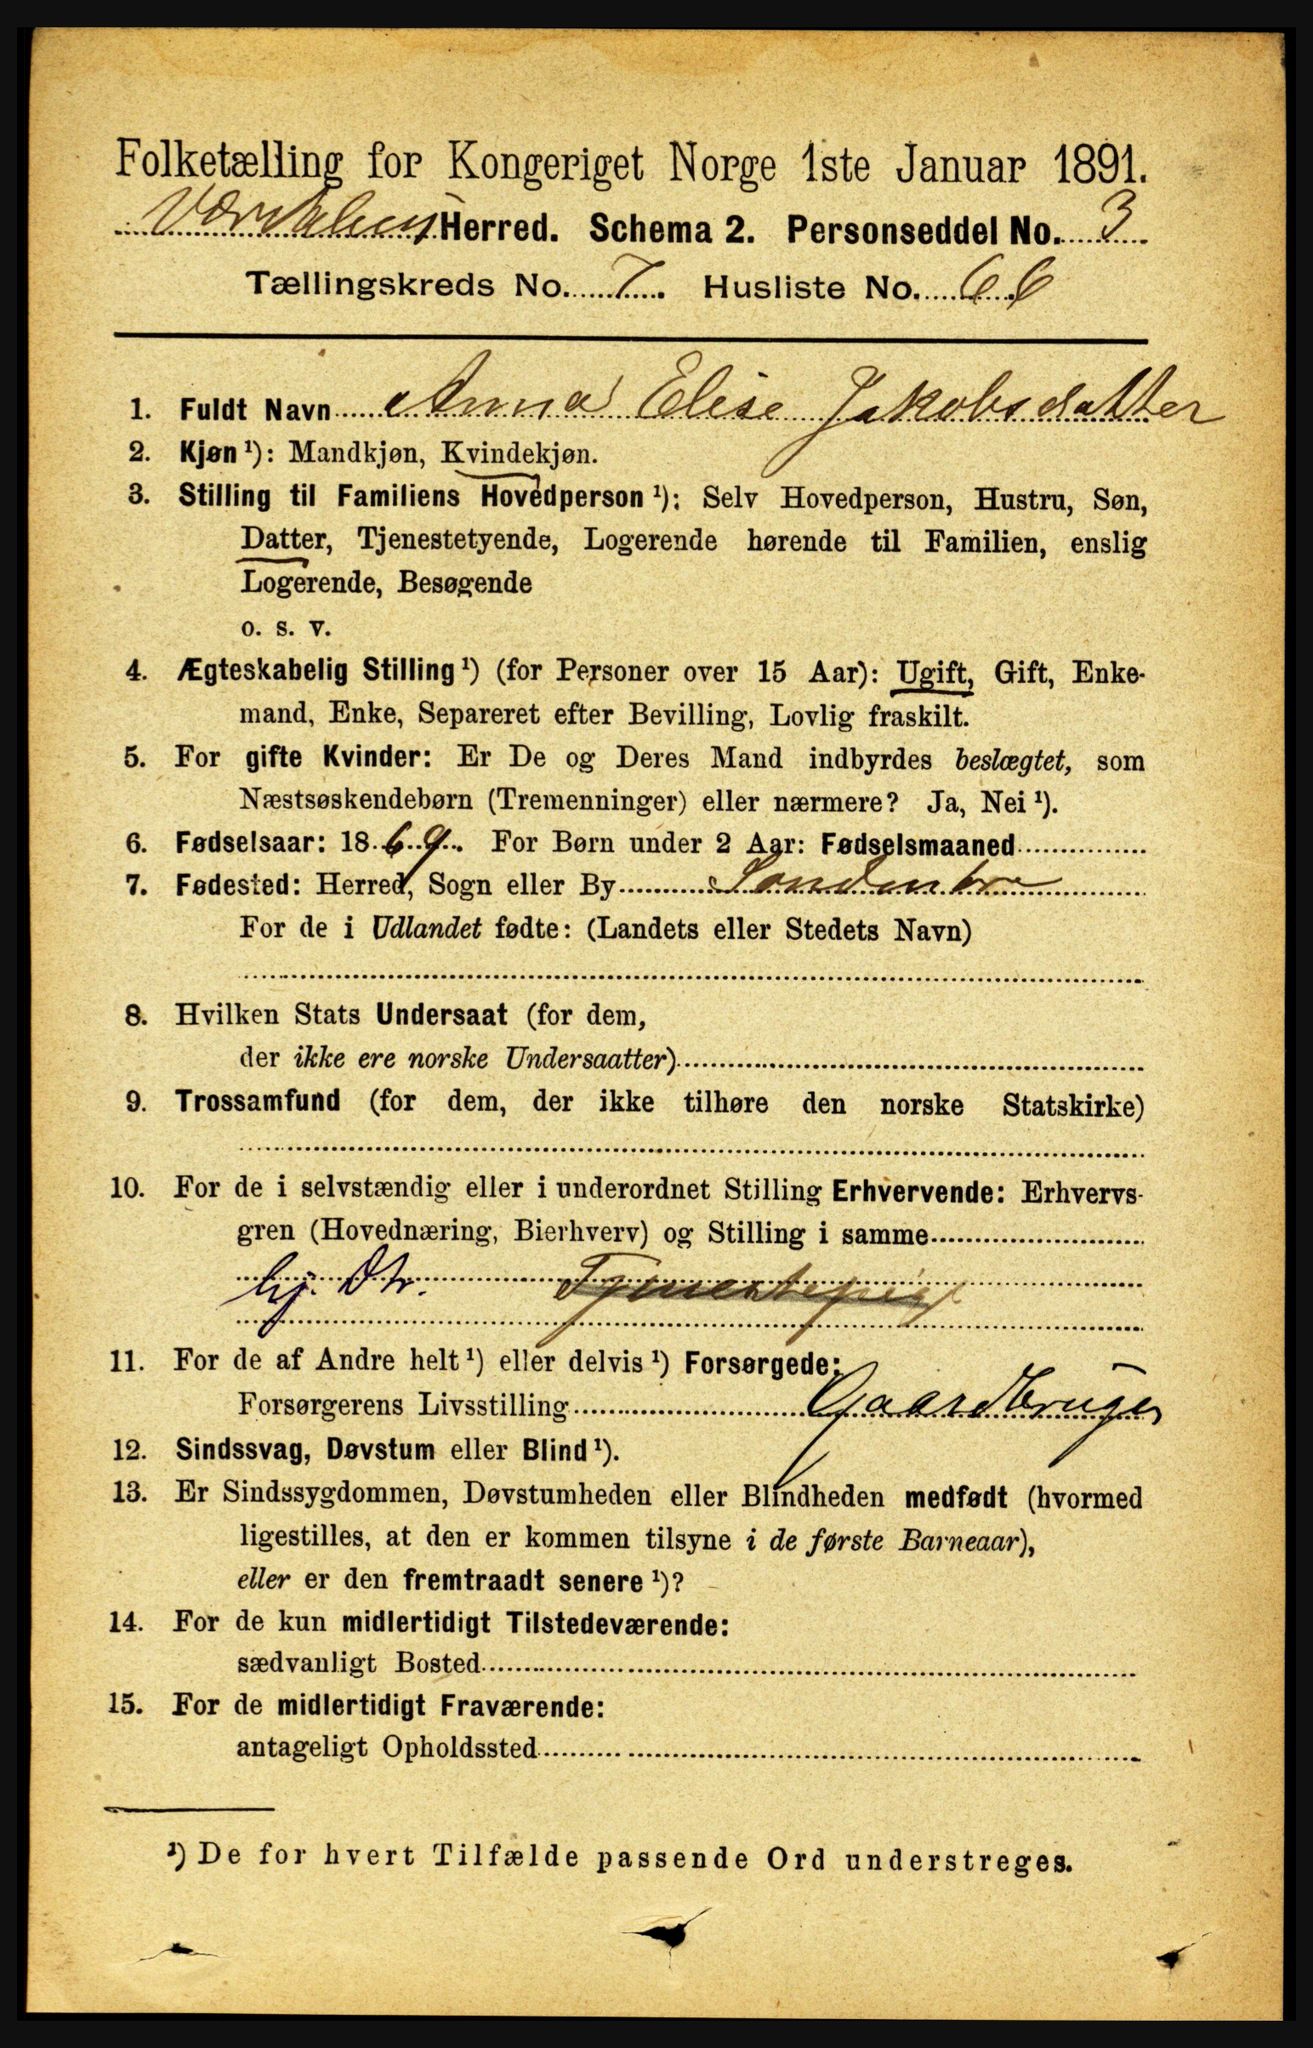 Folketælling for Kongeriget Norge 1ste Januar 1891.
Herred. Schema 2. Personseddel No. 3
Tællingskreds No. 7. Husliste No. 66
1. Fuldt Navn Anna Elise Jakobsdatter
2. Kjøn ¹): Mandkjøn, Kvindekjøn.
3. Stilling til Familiens Hovedperson ¹): Selv Hovedperson, Hustru, Søn,
Datter, Tjenestetyende, Logerende hørende til Familien, enslig
Logerende, Besøgende
o. s. v.
4. Ægteskabelig Stilling ¹) (for Personer over 15 Aar): Ugift, Gift, Enke-
mand, Enke, Separeret efter Bevilling, Lovlig fraskilt.
5. For gifte Kvinder: Er De og Deres Mand indbyrdes beslægtet, som
Næstsøskendebørn (Tremenninger) eller nærmere? Ja, Nei ¹).
6. Fødselsaar: 1869. For Børn under 2 Aar: Fødselsmaaned
7. Fødested: Herred, Sogn eller By
For de i Udlandet fødte: (Landets eller Stedets Navn)
8. Hvilken Stats Undersaat (for dem,
der ikke ere norske Undersaatter)
9. Trossamfund (for dem, der ikke tilhøre den norske Statskirke)
10. For de i selvstændig eller i underordnet Stilling Erhvervende: Erhvervs-
gren (Hovednæring, Bierhverv) og Stilling i samme
hj. Dtr.
11. For de af Andre helt ¹) eller delvis ¹) Forsørgede:
Forsørgerens Livsstilling Gaardbruger
12. Sindssvag, Døvstum eller Blind ¹).
13. Er Sindssygdommen, Døvstumheden eller Blindheden medfødt (hvormed
ligestilles, at den er kommen tilsyne i de første Barneaar),
eller er den fremtraadt senere ¹)?
14. For de kun midlertidigt Tilstedeværende:
sædvanligt Bosted
15. For de midlertidigt Fraværende:
antageligt Opholdssted
¹) De for hvert Tilfælde passende Ord understreges.